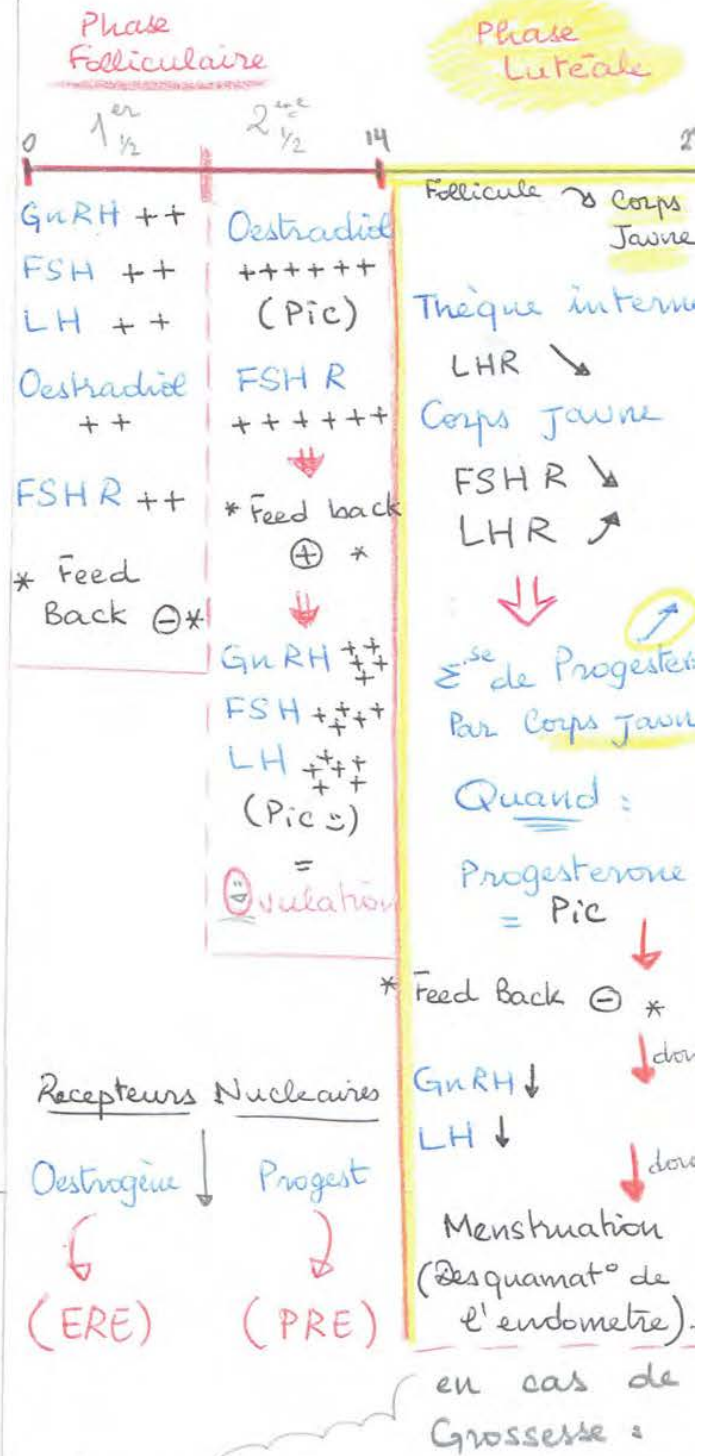 Phase
Folliculaire
1er 1/2
2ème 1/2
0
14
GnRH ++
FSH ++
LH ++
Oestradiol
++
FSHR ++
* Feed
Back ⊖*
Oestradiol
++++++
(Pic)
FSH R
++++++
* Feed back
⊕ *
GnRH +++++
FSH +++++
LH ++++++
(Pic :)
=
Ovulation
Phase
Lutéale
2
Follicule ↘ Corps
Jaune
Thèque intern
LHR ↘
Corps Jaune
FSHR ↘
LHR ↗
⇓ ↗
Σse de Progester
Par Corps Jaun
Quand :
Progesterone
= Pic ↓
* Feed Back ⊖ *
↓ don
GnRH ↓
LH ↓
↓ don
Menstruation
(Desquamat° de
l'endometre).
Recepteurs Nucleaires
Oestrogène ↓ Progest
(ERE) (PRE)
en cas de
Grossesse :